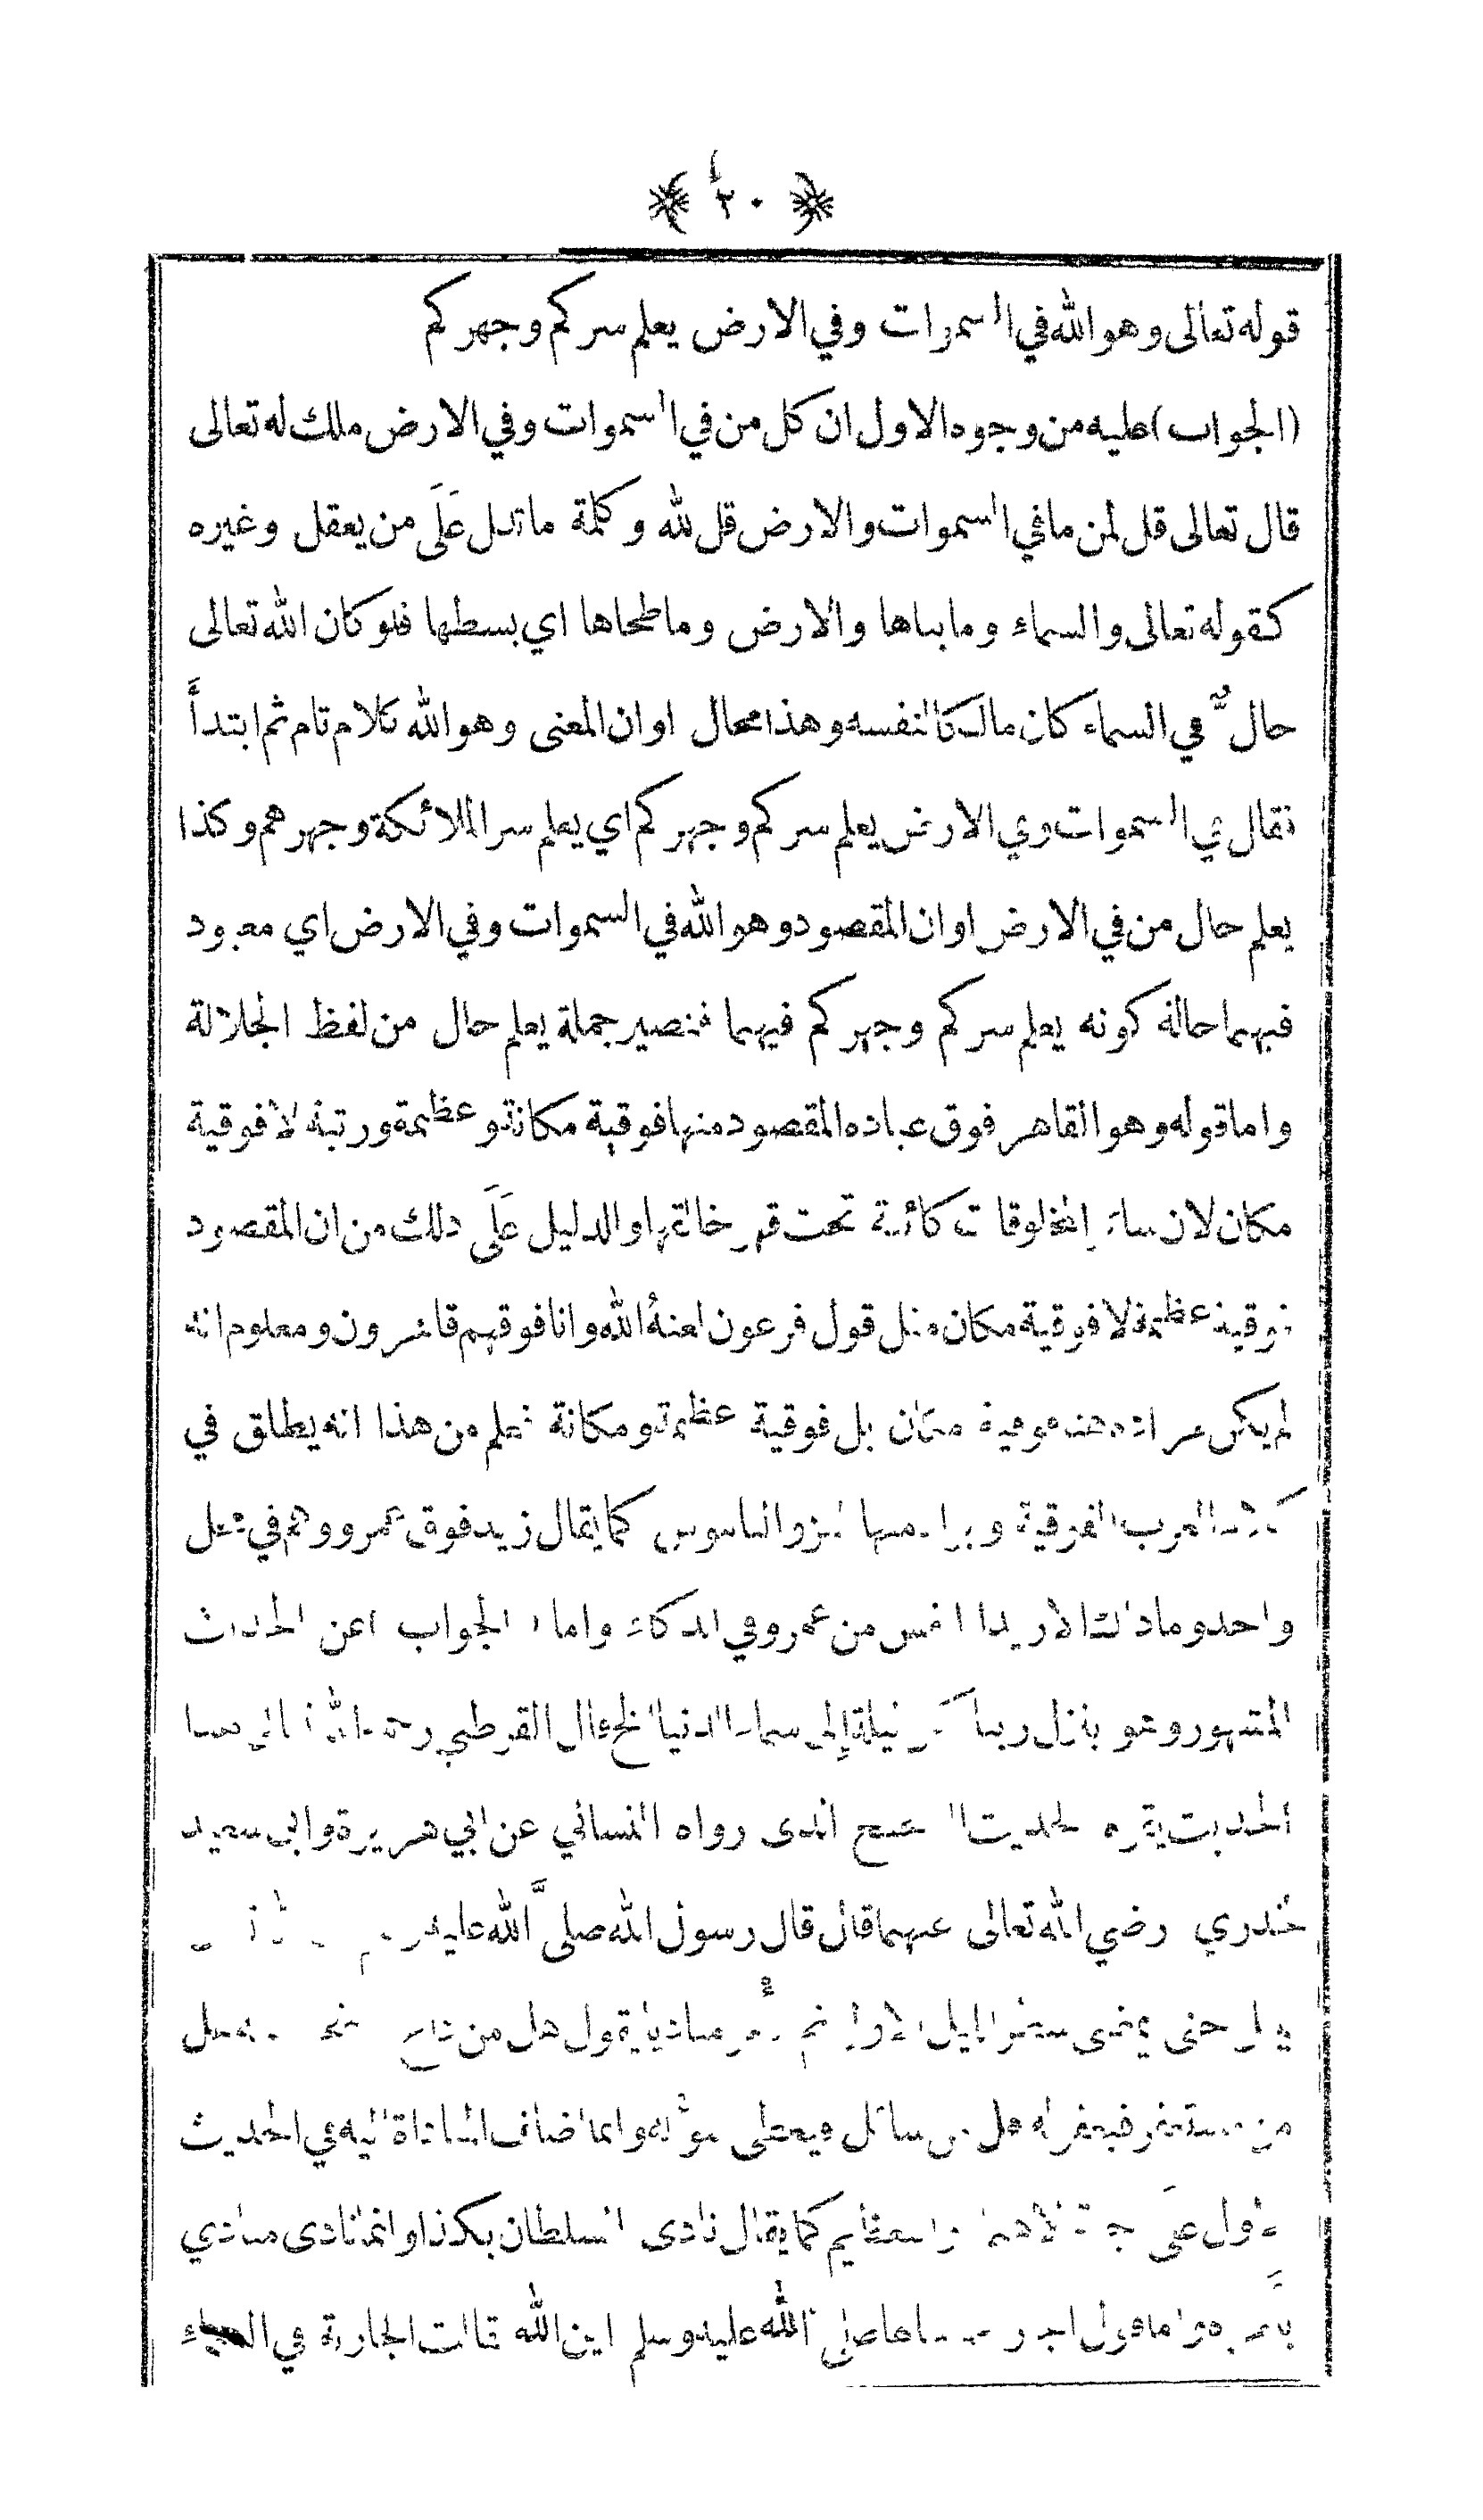 ﴿ ٢٠ ﴾
قوله تعالى وهو الله في السموات وفي الارض يعلم سركم وجهركم
(الجواب) عليه من وجوه الاول ان كل من في السموات وفي الارض ملك له تعالى
قال تعالى قل لمن ما في السموات والارض قل لله وكلمة ما تدل عَلَى من يعقل وغيره
كقوله تعالى والسماء وما بناها والارض وما طحاها اي بسطها فلو كان الله تعالى
حالٌّ في السماء كان مالكا لنفسه وهذا محال او ان المعنى وهو الله كلام تام ثم ابتدأَ
فقال في السموات وفي الارض يعلم سركم وجهركم اي يعلم سر الملائكة وجهرهم وكذا
يعلم حال من في الارض او ان المقصود وهو الله في السموات وفي الارض اي معبود
فيهما حالة كونه يعلم سركم وجهركم فيهما فتصير جملة يعلم حال من لفظ الجلالة
واما قوله وهو القاهر فوق عباده المقصود منها فوقية مكانة وعظيمة ورتبة لا فوقية
مكان لان سائر المخلوقات كائنة تحت قهر خالقها والدليل عَلَى ذلك من ان المقصود
فوقية عظيمة لا فوقية مكان مثل قول فرعون لعنهُ الله وانا فوقهم قاهرون ومعلوم انه
لم يكن مراده هنه فوقية مكان بل فوقية عظيمة ومكانة فعلم من هذا انه يطلق في
العرب الفوقية ويراد منها كما يقال زيد فوق عمرو وهم في محل
واحد وما ذلك الا زيدا من عمرو في الذكاء واما الجواب عن الحديث
المشهور وهو ينزل ربنا كل ليلة إلى سماء الدنيا الخ قال القرطبي رحمه الله
الحديث يفسره الحديث الصحيح الذي رواه النسائي عن ابي هريرة وابي سعيد
خدري رضي الله تعالى عنهما قال قال رسول الله صلى الله عليه
حتى يمضي شطر الليل الاول ثم يأمر مناديا يقول هل من هل
من مستغفر فيغفر له هل من سائل فيعطى سؤله وانما اضاف المناداة اليه في الحديث
كما يقال نادى السلطان بكذا وانما نادى منادي
صلى الله عليه وسلم اين الله قالت الجارية في السماء